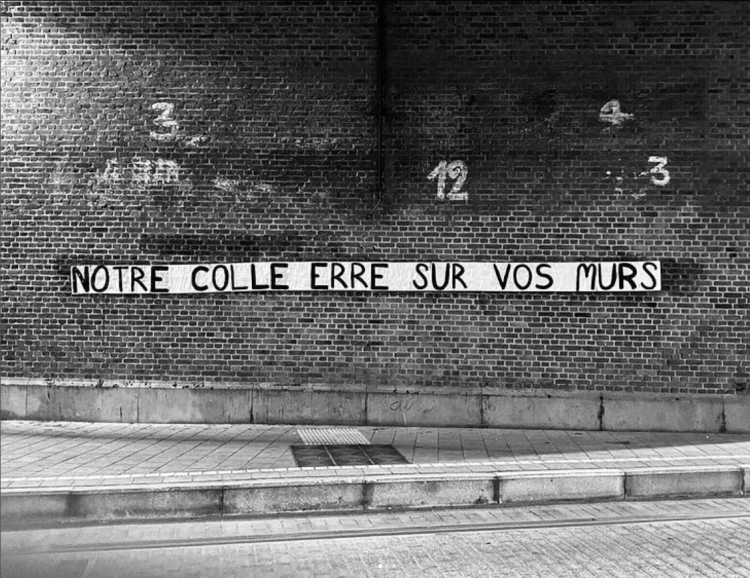 3
4
12
3
NOTRE COLLE ERRE SUR VOS MURS